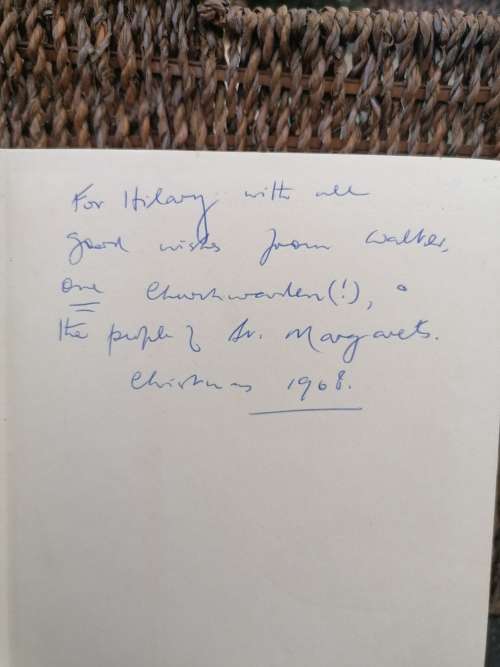 For Hilary with all
good wishes from Walter,
one Churchwarden(!), &
the people of St. Margarets.
Christmas 1968.